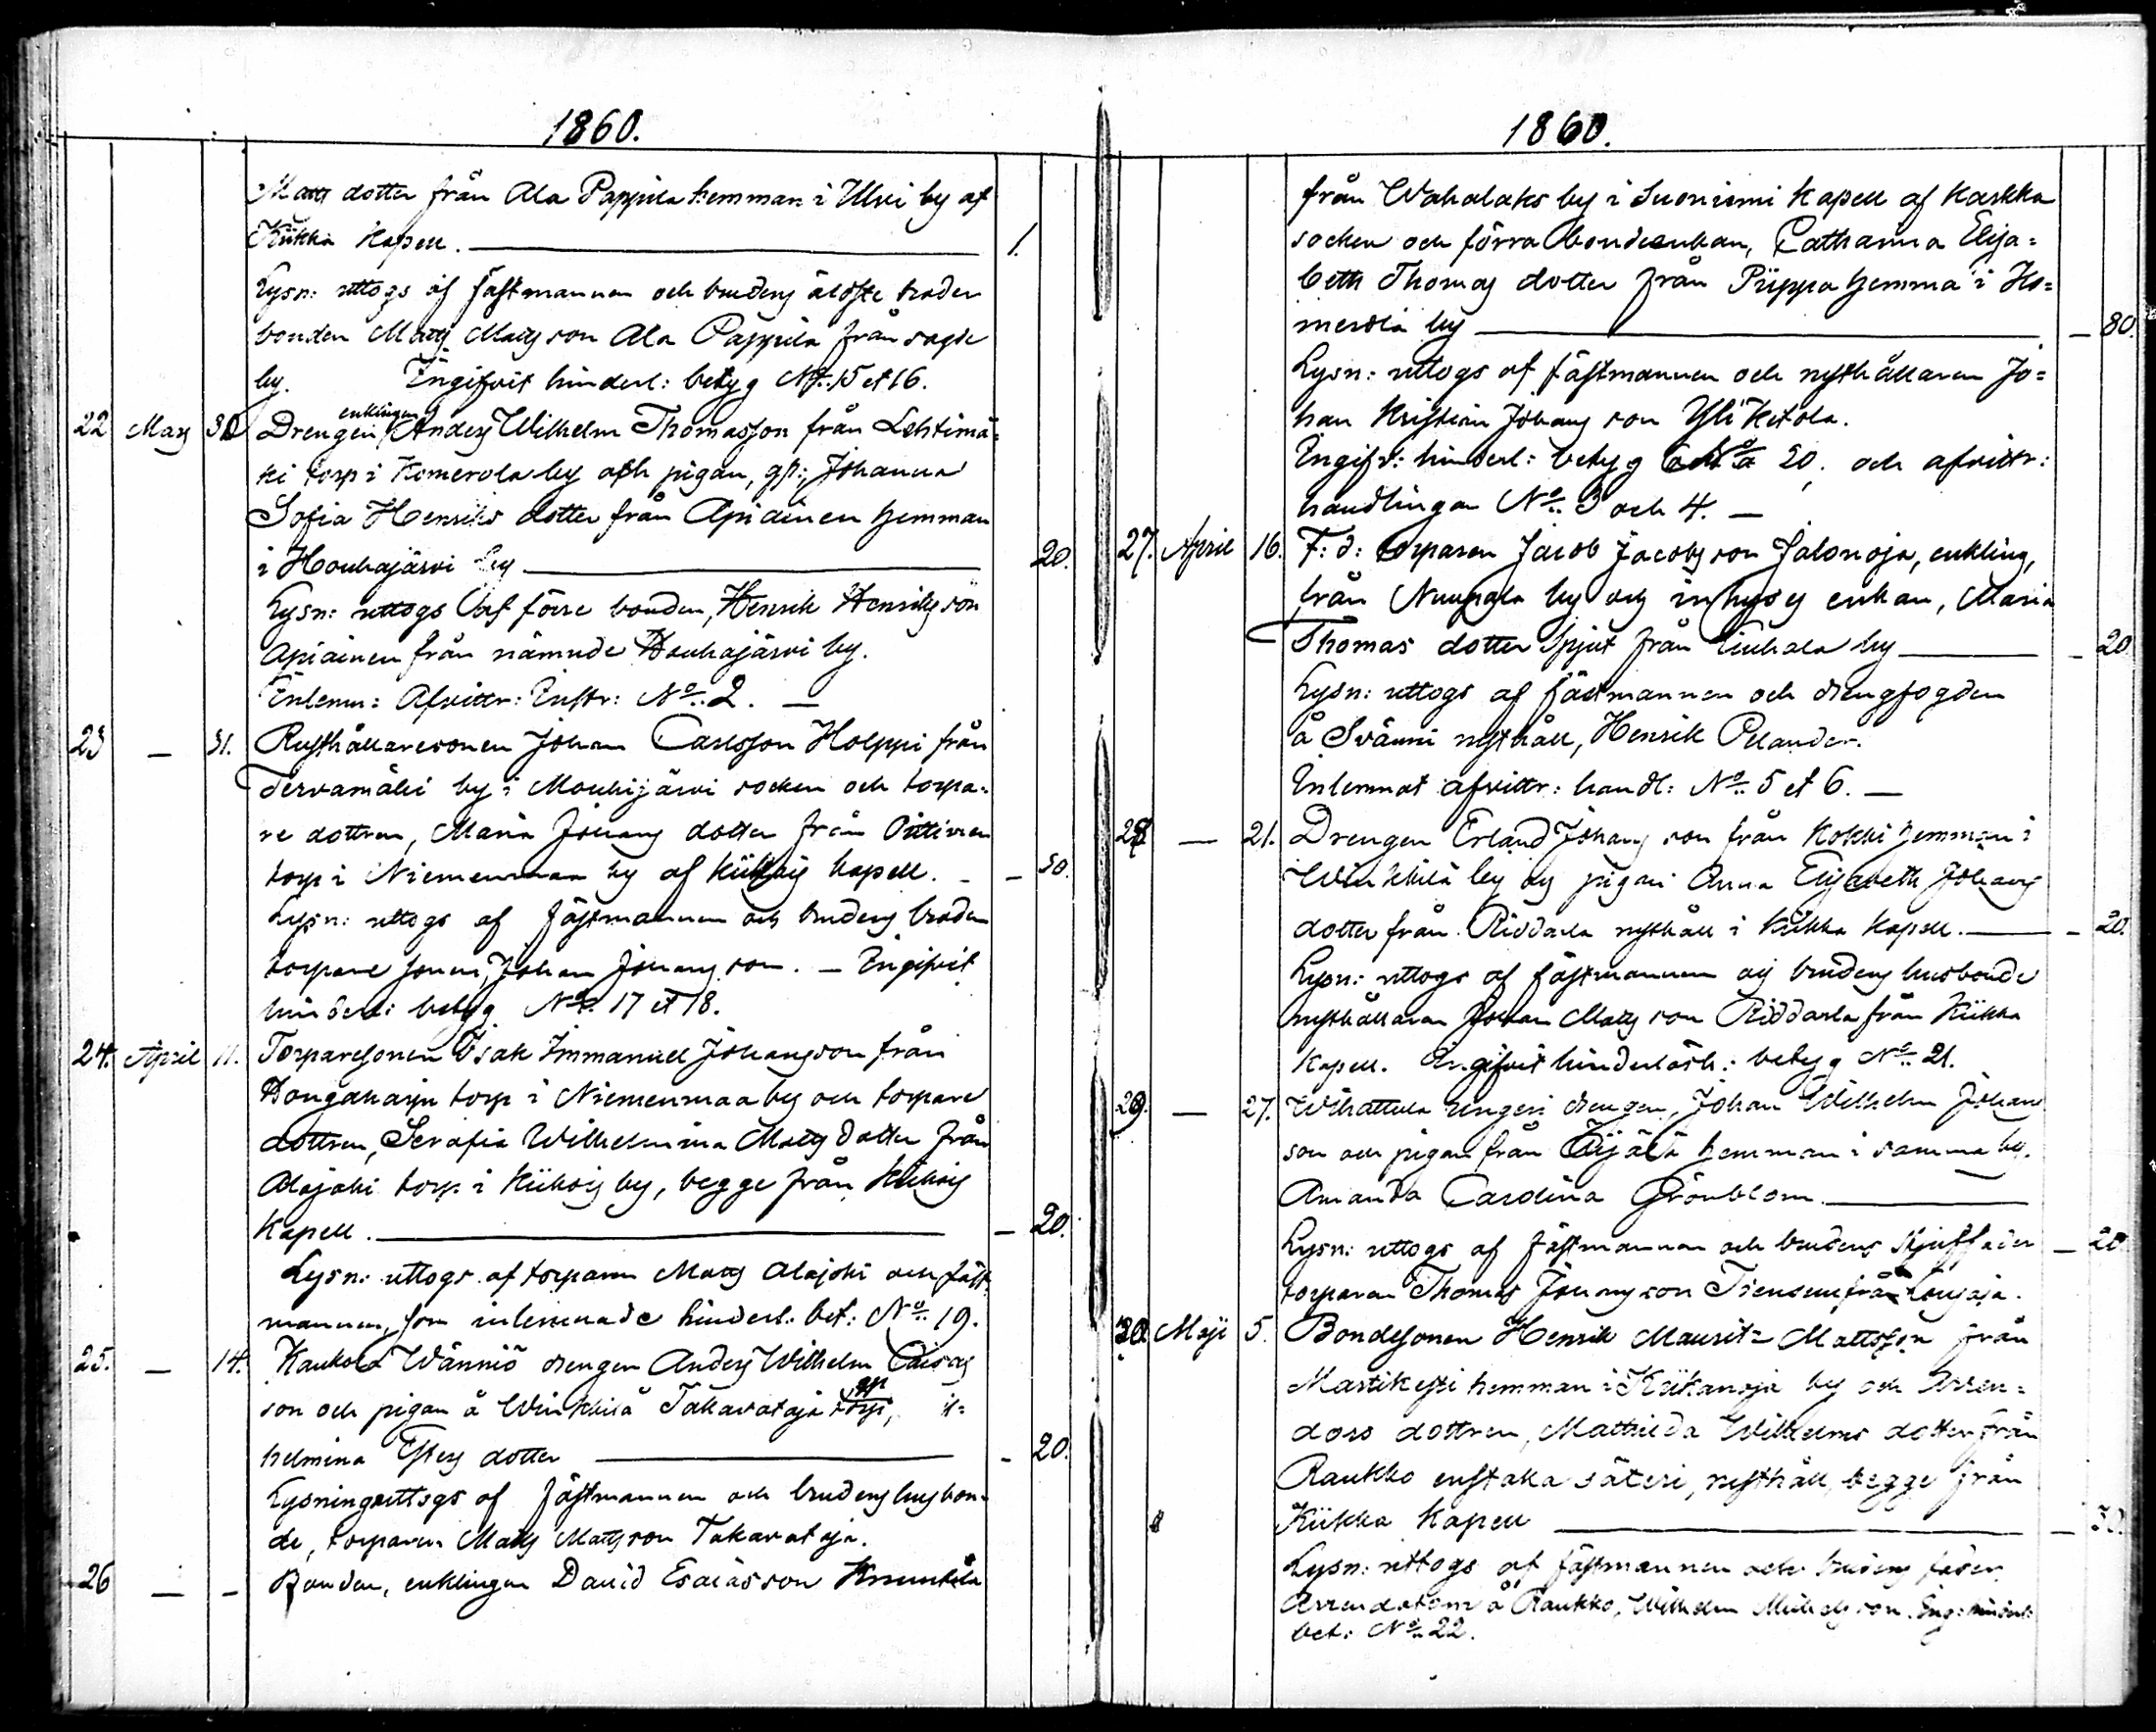 1860.
Matts dotter från Ala Pappila hemman i Illvi by af
Kiikka Kapell. 1.
Lysn: uttogs af fästmannen och brudens äldste broder
bonden Matts Mattsson Ala Pappila från sagde
by. Ingifvit hinderl: betyg No. 15 et 16.
22 Mars 30 Drengen enklingen Anders Wilhelm Thomasson från Lehtimä=
ki torp i Komerola by och pigan, Johanna
Sofia Henriks dotter från Apiainen hemman
i Houhajärvi by 20.
Lysn: uttogs af förre bonden, Henrik Henriksson
Apiainen från nämnde Houhajärvi by.
Inlemn: Afvittr: Instr: No. 2. —
23 — 31. Rusthållaresonen Johan Carlsson Holppi från
Tervamäki by i Mouhijärvi socken och torpa=
re dottren, Maria Johans dotter från
torp i Niemenmaa by af Kiikois kapell. - - 50.
Lysn: uttogs af fästmannen och brudens broder
torpare sonen, Johan Johans son. — Ingifvit
hinderl: betyg No. 17 et 18.
24. April 11. Torparesonen Isak Immanuel Johansson från
Hongaharju torp i Niemenmaa by och torpare
dottren, Serafia Wilhelmina Matts dotter från
Alajoki torp i Kiikois by, begge från Kiikois
Kapell. — 20.
Lysn: uttogs af torparen Matts Alajoki och fäst=
mannen, som inlemnade hinderl. bet: No. 19.
25. — 14. Kaukola Wänniö drengen Anders Wilhelm
son och pigan å Winkkilä Takavataja torp,
helmina dotter - 20.
Lysning uttogs af fästmannen och brudens husbon=
de, torparen Matts Mattsson Takavataja.
26 — - Bonden, enklingen David Esaiasson
1860.
från Wahalaks by i Suoniemi Kapell af Karkku
socken och förra bondeenkan, Catharina Elisa=
beth Thomas dotter från Piippo hemman i Ko=
merola by — 80.
Lysn: uttogs af fästmannen och rusthållaren Jo=
han Kristian Johans son Yli Ketola.
Ingifv: hinderl: betyg No 20, och afvittr:
handlingar No. 3 och 4. —
27. April 16. F: d: torparen Jacob Jacobsson Jalonoja, enkling,
från Nuupala by och inhyses enkan, Maria
Thomas dotter Spjut från by - 20
Lysn: uttogs af fästmannen och drengfogden
å Svänni rusthåll, Henrik Pelander.
Inlemnat afvittr: handl: No. 5 et 6. —
28 — 21. Drengen Erland Johans son från Kokki hemman i
Winkkilä by och pigan Anna Elisabeth Johans
dotter från Riddarla rusthåll i Kiikka Kapell. - 20.
Lysn: uttogs af fästmannen och brudens husbonde
rusthållaren Johan Matts son Riddarla från Kiikka
Kapell. Ingifvit hinderlösh: betyg No. 21.
29. — 27. Wihattula ungers drengen, Johan Wilhelm Johans
son och pigan från Äijälä hemman i samma by.
Amanda Carolina Grönblom.
Lysn: uttogs af fästmannen och brudens styffader — 20
torparen Thomas Johansson från
30. Maji 5. Bondesonen Henrik Mauritz Mattsson från
Martikysi hemman i Kiikanoja by och Arren=
dors dottren, Mathilda Wilhelms dotter från
Raukko enstaka säteri rusthåll begge från
Kiikka Kapell — 30.
Lysn: uttogs af fästmannen och brudens fader
Arrendatorn å Raukko, Wilhelm Michelsson. Ing: hinderl:
bet: No. 22.